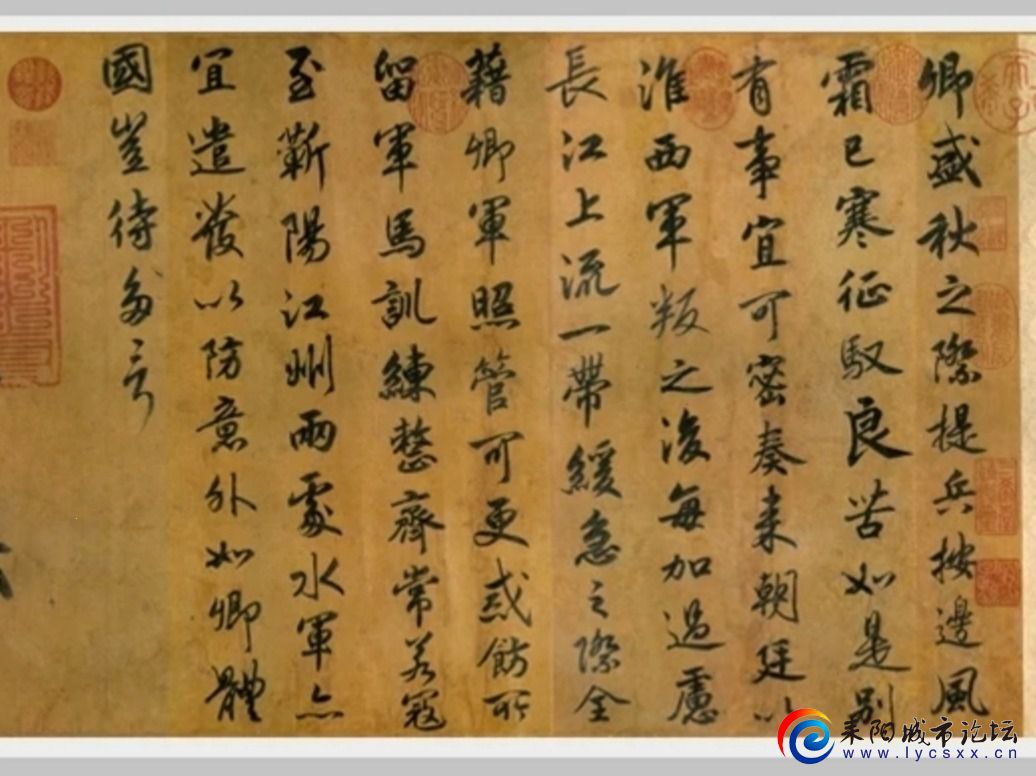 卿盛秋之際提兵按邊風
霜已寒征馭良苦如是别
有事宜可密奏来朝廷以
淮西軍叛之後每加過慮
長江上流一帶緩急之際全
藉卿軍照管可更戒飭所
留軍馬訓練整齊常若寇
至蘄陽江州兩處水軍亦
宜遣發以防意外如卿體
國豈待多言
耒阳城市论坛
www.lycsxx.cn